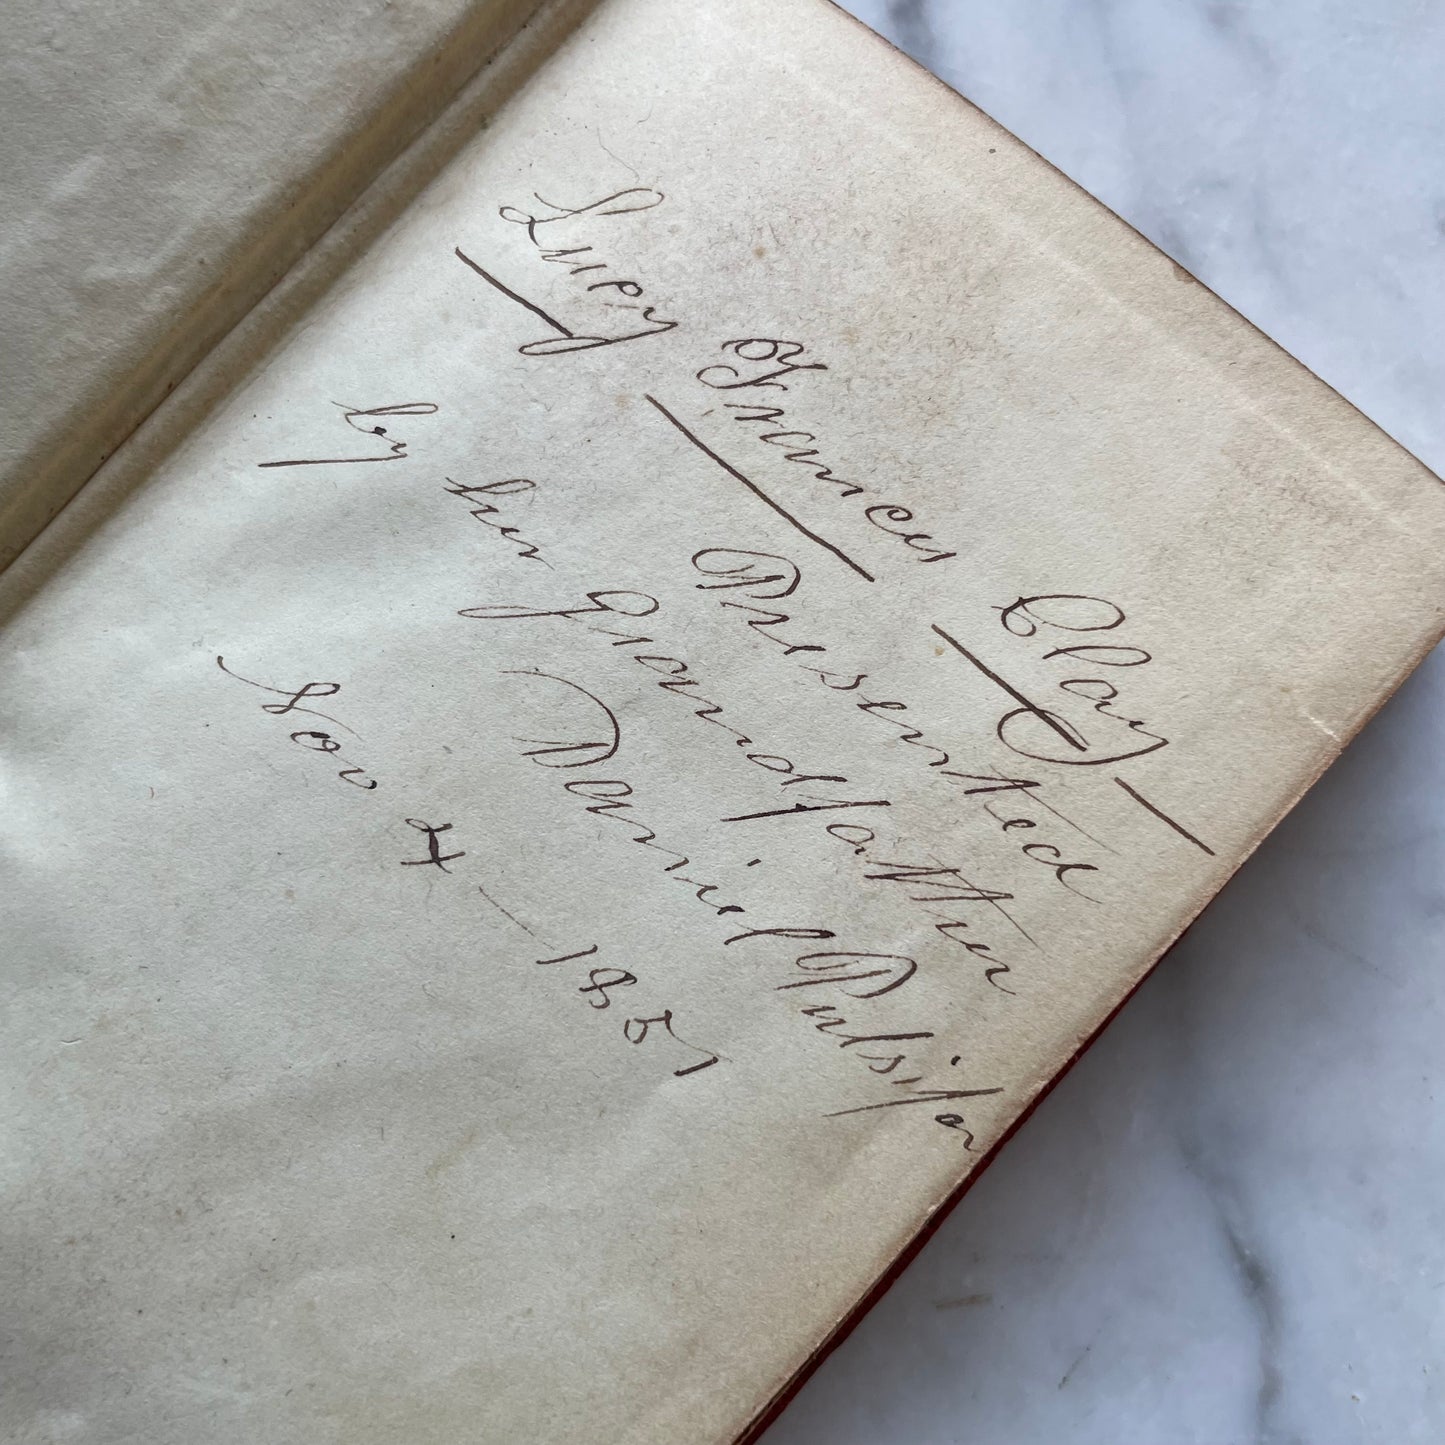 Lucy Frances Clay
Presented
by her Grandfather
Daniel Pulsifer
Nov 4 - 1857